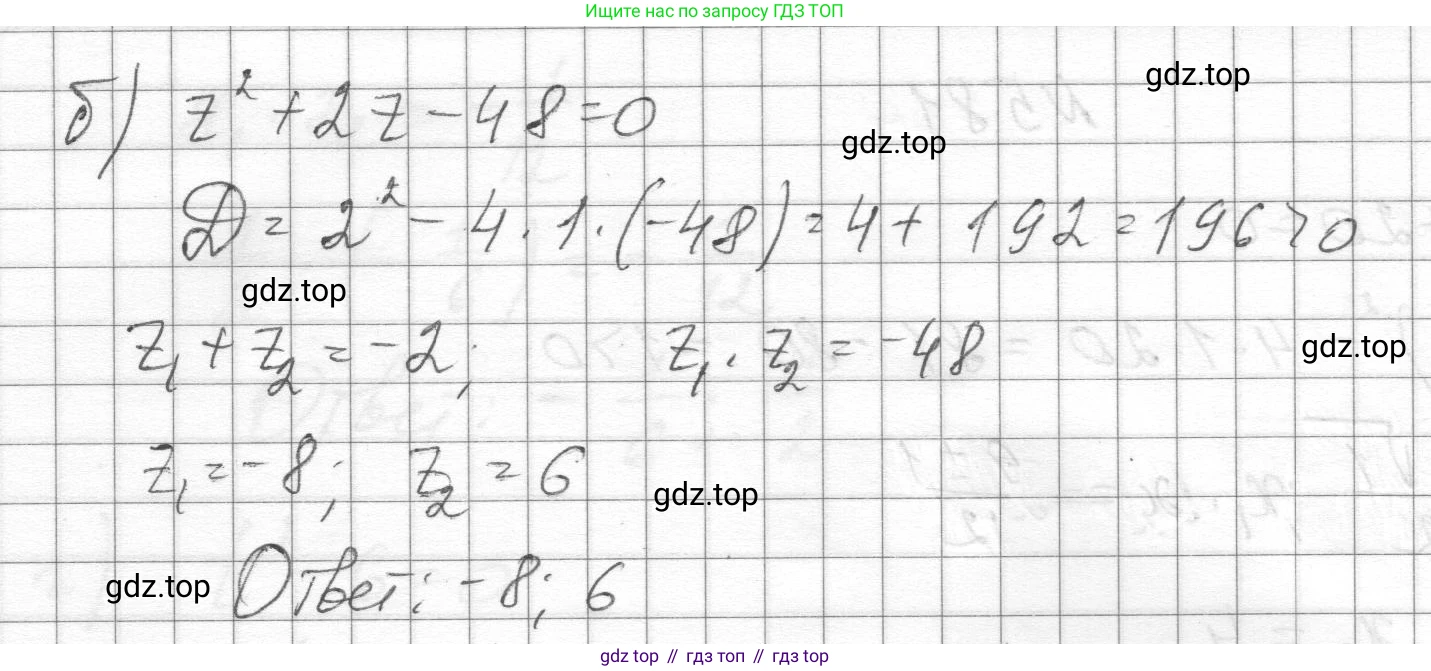 Ищите нас по запросу ГДЗ ТОП
gdz.top
б) z² + 2z - 48 = 0
gdz.top
D = 2² - 4 · 1 · (-48) = 4 + 192 = 196 > 0
gdz.top
z₁ + z₂ = -2; z₁ · z₂ = -48
gdz.top
z₁ = -8; z₂ = 6
gdz.top
gdz.top
Ответ: -8; 6
gdz top // гдз топ // гдз top